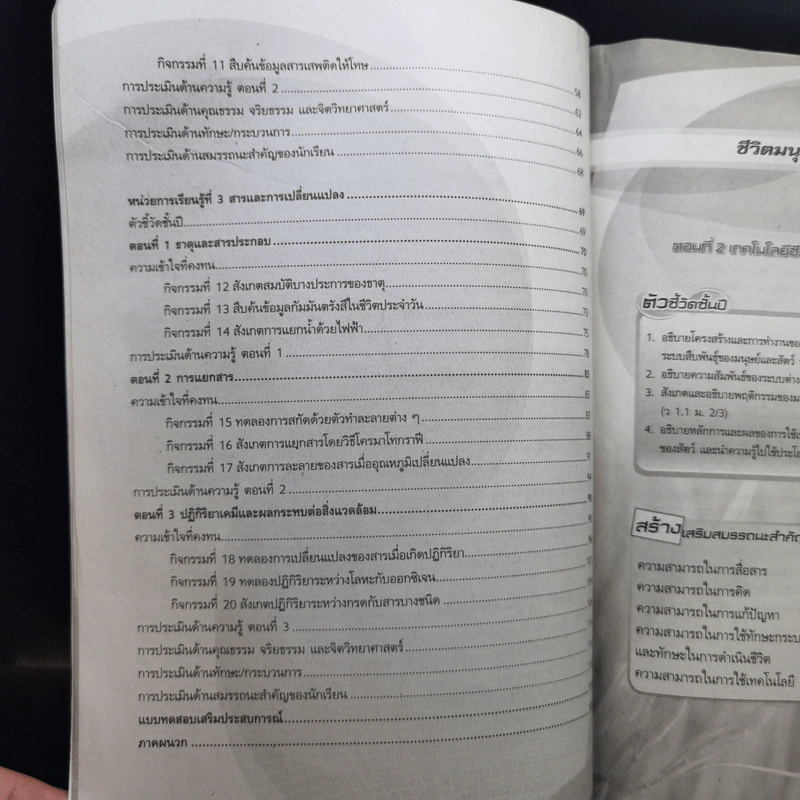 กิจกรรมที่ 11 สืบค้นข้อมูลสารเสพติดให้โทษ 58
การประเมินด้านความรู้ ตอนที่ 2 62
การประเมินด้านคุณธรรม จริยธรรม และจิตวิทยาศาสตร์ 64
การประเมินด้านทักษะ/กระบวนการ 66
การประเมินด้านสมรรถนะสำคัญของนักเรียน 68
หน่วยการเรียนรู้ที่ 3 สารและการเปลี่ยนแปลง 69
ตัวชี้วัดชั้นปี 69
ตอนที่ 1 ธาตุและสารประกอบ 70
ความเข้าใจที่คงทน 70
กิจกรรมที่ 12 สังเกตสมบัติบางประการของธาตุ 70
กิจกรรมที่ 13 สืบค้นข้อมูลกัมมันตรังสีในชีวิตประจำวัน 73
กิจกรรมที่ 14 สังเกตการแยกน้ำด้วยไฟฟ้า 75
การประเมินด้านความรู้ ตอนที่ 1 78
ตอนที่ 2 การแยกสาร 83
ความเข้าใจที่คงทน 83
กิจกรรมที่ 15 ทดลองการสกัดด้วยตัวทำละลายต่าง ๆ 83
กิจกรรมที่ 16 สังเกตการแยกสารโดยวิธีโครมาโทกราฟี 88
กิจกรรมที่ 17 สังเกตการละลายของสารเมื่ออุณหภูมิเปลี่ยนแปลง 91
การประเมินด้านความรู้ ตอนที่ 2 94
ตอนที่ 3 ปฏิกิริยาเคมีและผลกระทบต่อสิ่งแวดล้อม
ความเข้าใจที่คงทน
กิจกรรมที่ 18 ทดลองการเปลี่ยนแปลงของสารเมื่อเกิดปฏิกิริยา
กิจกรรมที่ 19 ทดลองปฏิกิริยาระหว่างโลหะกับออกซิเจน
กิจกรรมที่ 20 สังเกตปฏิกิริยาระหว่างกรดกับสารบางชนิด
การประเมินด้านความรู้ ตอนที่ 3
การประเมินด้านคุณธรรม จริยธรรม และจิตวิทยาศาสตร์
การประเมินด้านทักษะ/กระบวนการ
การประเมินด้านสมรรถนะสำคัญของนักเรียน
แบบทดสอบเสริมประสบการณ์
ภาคผนวก
ชีวิตมนุ
ตอนที่ 2 เทคโนโลยีชี
ตัวชี้วัดชั้นปี
1. อธิบายโครงสร้างและการทำงานขอ
ระบบสืบพันธุ์ของมนุษย์และสัตว์
2. อธิบายความสัมพันธ์ของระบบต่าง
3. สังเกตและอธิบายพฤติกรรมของม
(ว 1.1 ม. 2/3)
4. อธิบายหลักการและผลของการใช้เ
ของสัตว์ และนำความรู้ไปใช้ประโย
สร้างเสริมสมรรถนะสำคัญ
ความสามารถในการสื่อสาร
ความสามารถในการคิด
ความสามารถในการแก้ปัญหา
ความสามารถในการใช้ทักษะกระบ
และทักษะในการดำเนินชีวิต
ความสามารถในการใช้เทคโนโลยี